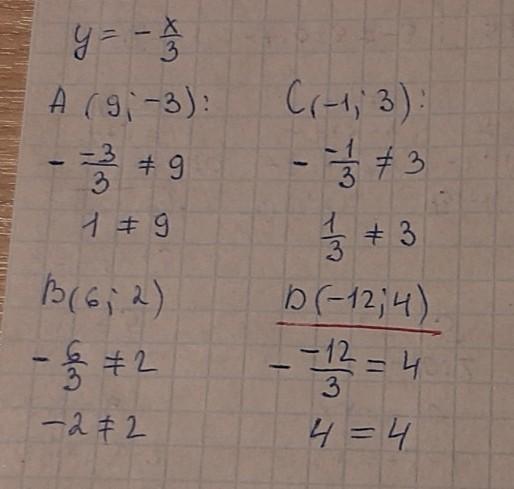 y = -x/3
A (9; -3):
- -3/3 ≠ 9
1 ≠ 9
B(6; 2)
- 6/3 ≠ 2
-2 ≠ 2
C(-1; 3):
- -1/3 ≠ 3
1/3 ≠ 3
D(-12; 4)
- -12/3 = 4
4 = 4